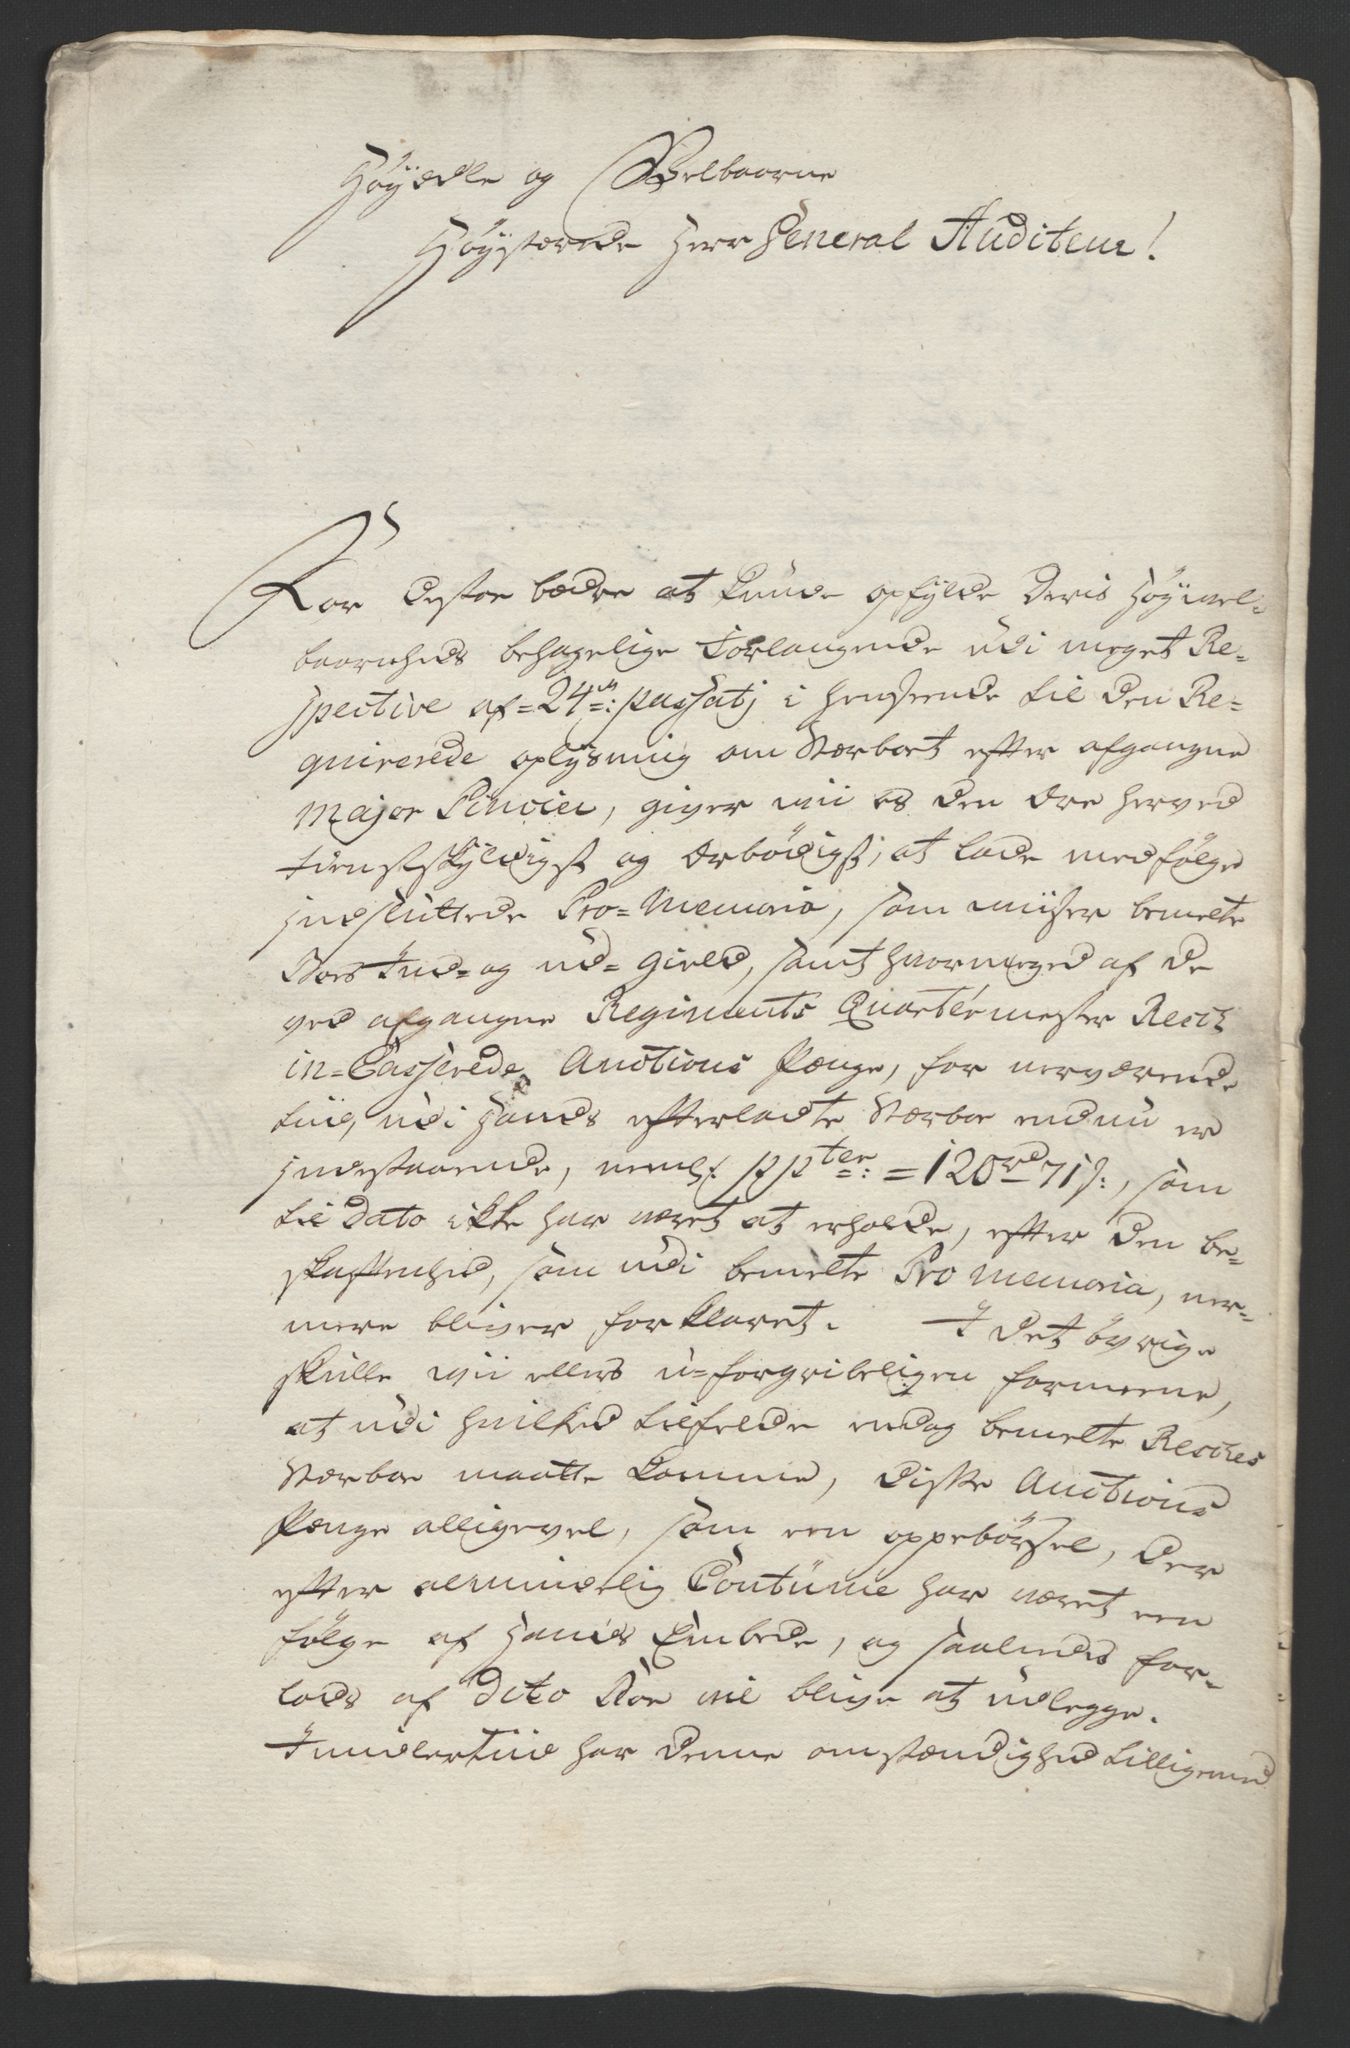 Høyædle og Welbaarne
Høystærede Herr General Auditeur!
For desto bædre at kunde opfylde Deris Høywel-
baarenheds behagelige Forlangende udi meget Re-
spective af = 24de: passatj i henseende til den Re-
quirerede oplysning om Stærboet efter afgangne
Major, giver wii os den Ære herved
tienstskyldigst og ærbödigst, at lade medfølge
indsluttede Pro-Memoria, som wiiser bemelte
Boes Ind- og ud-gield, samt hvormeged af de
ved afgangne Regiments Quartermester Resch
in-Casserede Auctions Penge, for nerværende
tiid, udi Hands efterladte Stærboe endnu er
Indestaaende, neml: ppter: = 120rd 71s:, som
til Dato ikke har været at erholde, efter den be-
skaffenhed, som udi bemelte Pro Memoria, ner-
mere bliver forklaret. I det övrige
skulle wii ellers u-forgribeligen formeene,
at udi hvilked tilfelde endog bemelte Resches
Stærboe maatte komme, diske Auctions
Penge alligevel, som een oppebörsel, der
efter almindelig Coutüme har været een
følge af Hands Embede, og saaledes for-
lods af Dito Boe vil blive at udlegge.
Imidlertiid har denne omstændighed tilligemed